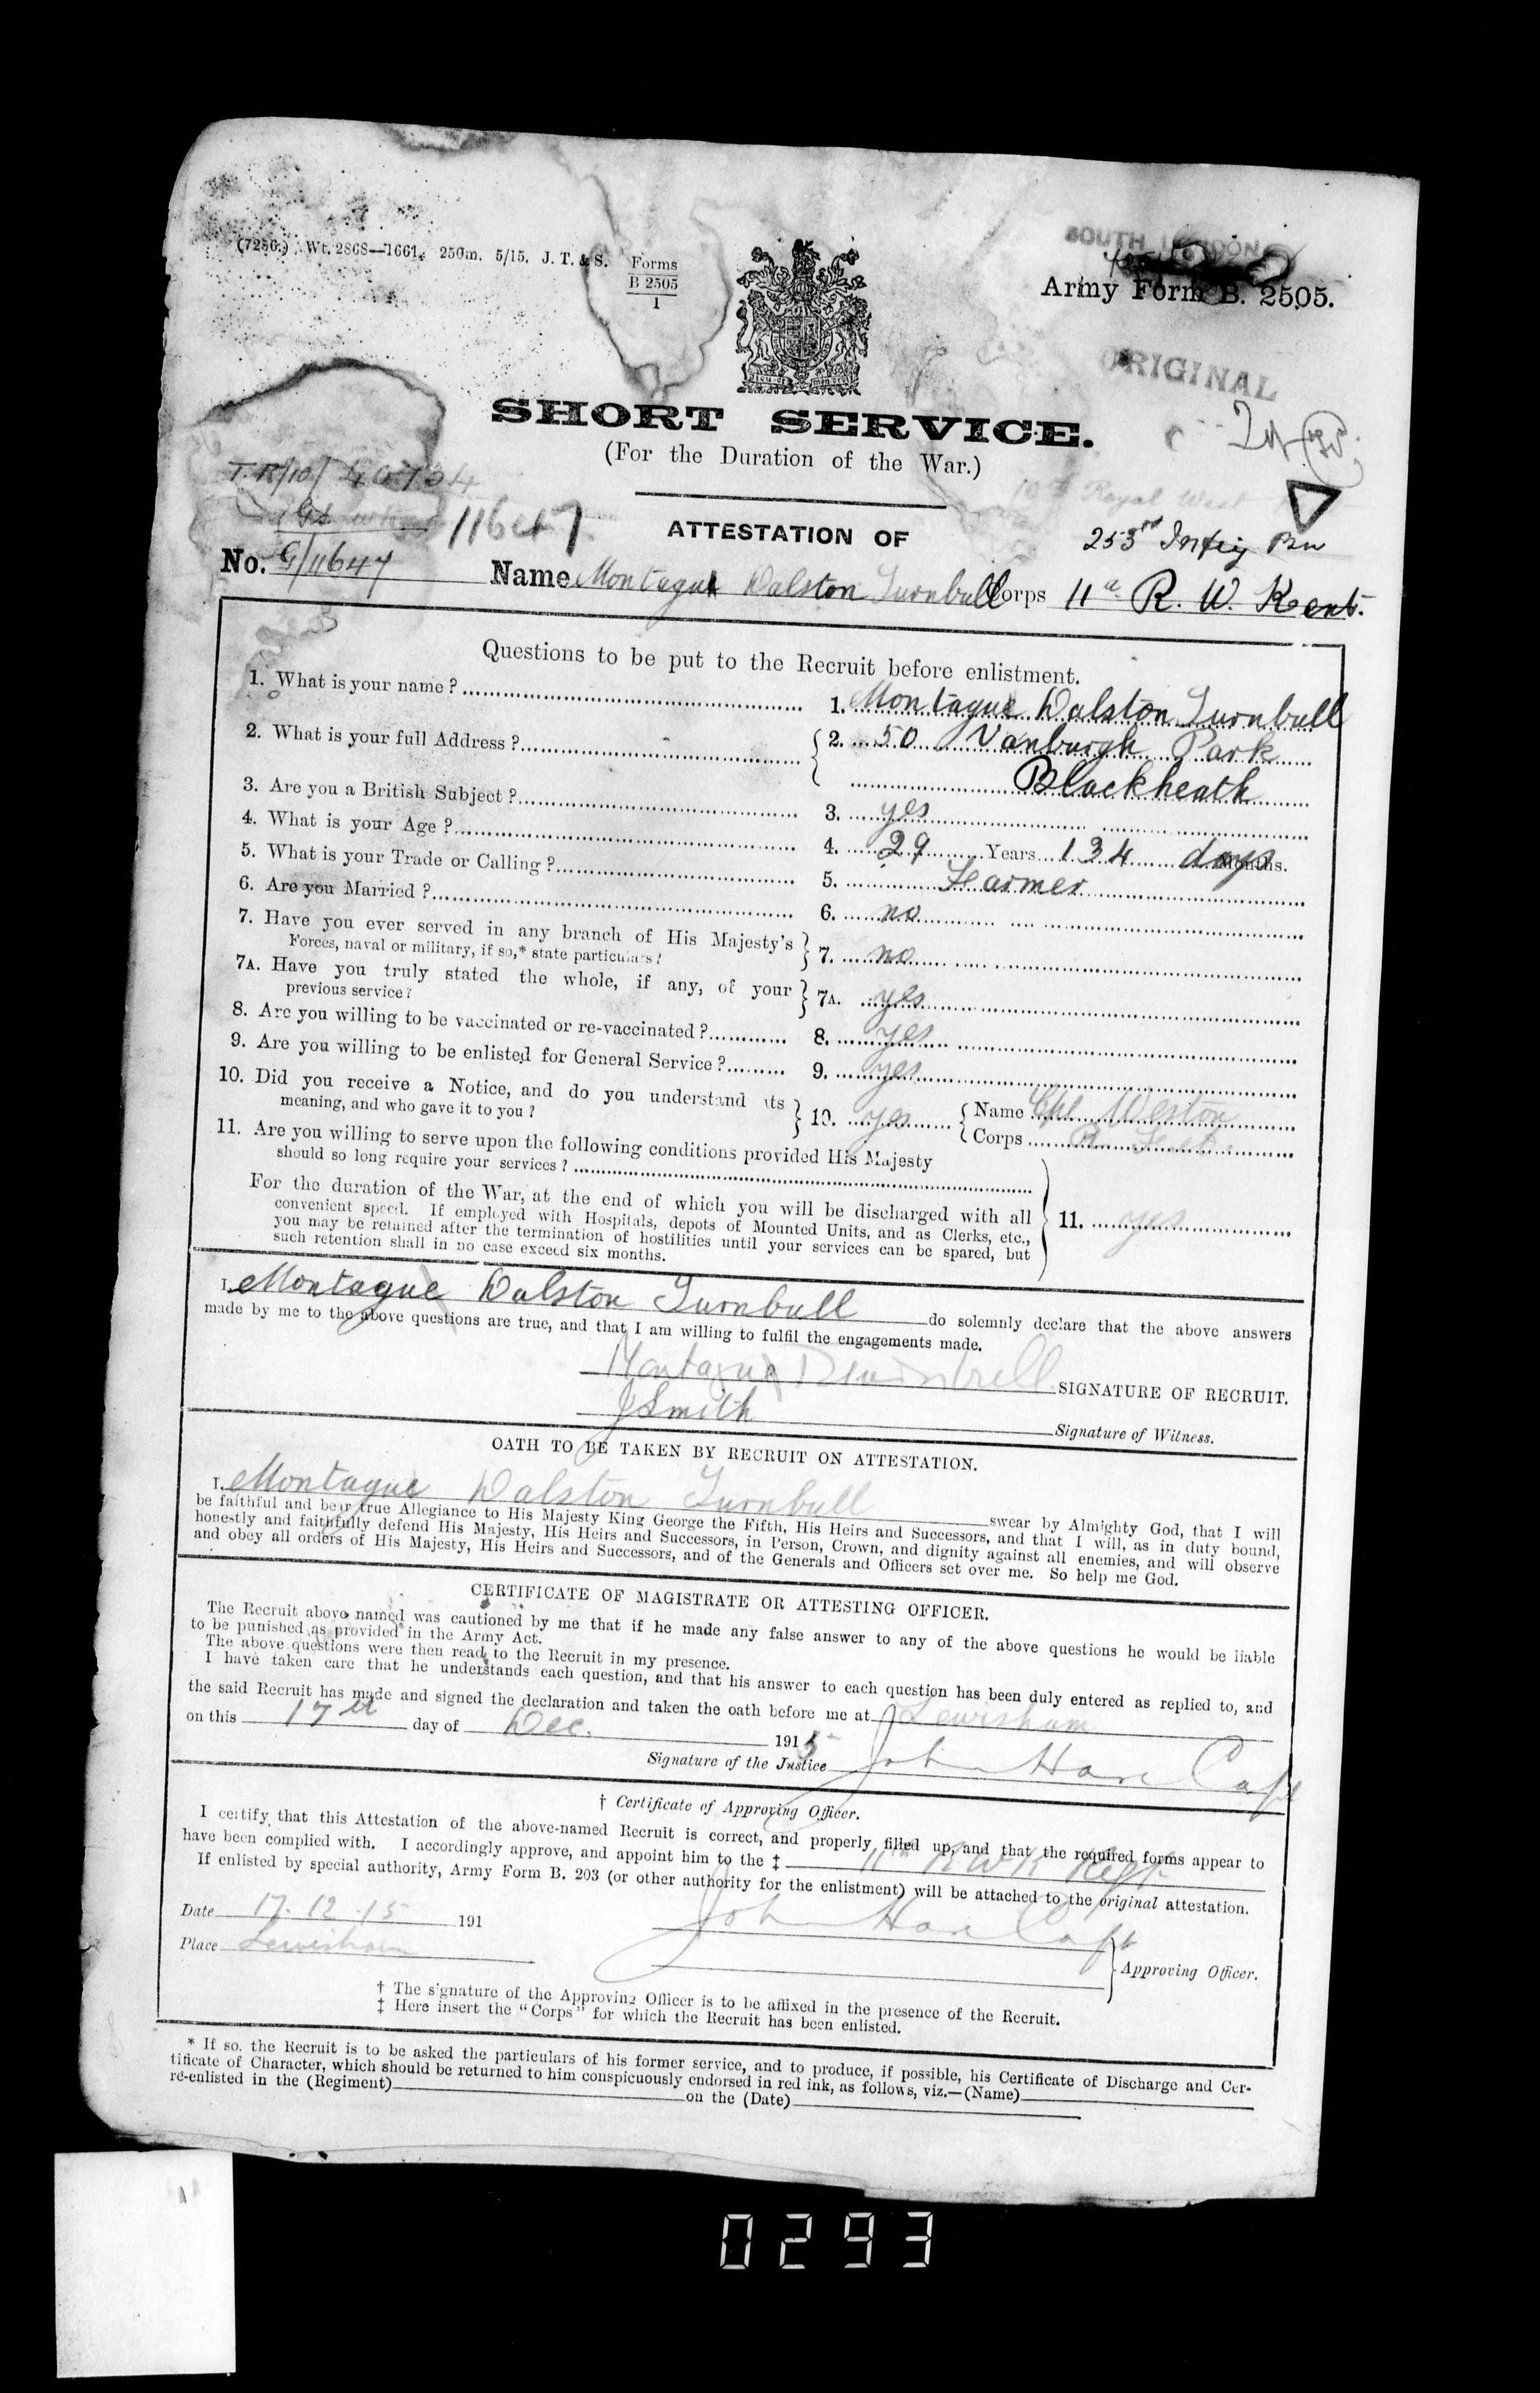 (7256.) Wt. 2868—1661. 250m. 5/15. J. T. & S. Forms
B 2505
1
SOUTH LONDON
Army Form B. 2505.
ORIGINAL
SHORT SERVICE.
(For the Duration of the War.)
T.R/10/ 40734
10th Royal West
11647
ATTESTATION OF
253rd Inf Bn
No. G/11647 Name Montague Dalston Turnbull Corps 11th R. W. Kent.
Questions to be put to the Recruit before enlistment.
1. What is your name? 1. Montague Dalston Turnbull
2. What is your full Address? 2. 50 Vanburgh Park
Blackheath
3. Are you a British Subject? 3. yes
4. What is your Age? 4. 29 Years 134 days Months.
5. What is your Trade or Calling? 5. Farmer
6. Are you Married? 6. no
7. Have you ever served in any branch of His Majesty's
Forces, naval or military, if so,* state particulars? 7. no
7A. Have you truly stated the whole, if any, of your
previous service? 7A. yes
8. Are you willing to be vaccinated or re-vaccinated? 8. yes
9. Are you willing to be enlisted for General Service? 9. yes
10. Did you receive a Notice, and do you understand its
meaning, and who gave it to you? 10. yes Name Cpl Weston
Corps R.
11. Are you willing to serve upon the following conditions provided His Majesty
should so long require your services?
For the duration of the War, at the end of which you will be discharged with all
convenient speed. If employed with Hospitals, depots of Mounted Units, and as Clerks, etc., 11. yes
you may be retained after the termination of hostilities until your services can be spared, but
such retention shall in no case exceed six months.
I, Montague Dalston Turnbull do solemnly declare that the above answers
made by me to the above questions are true, and that I am willing to fulfil the engagements made.
Montague D Turnbull SIGNATURE OF RECRUIT.
J Smith Signature of Witness.
OATH TO BE TAKEN BY RECRUIT ON ATTESTATION.
I, Montague Dalston Turnbull swear by Almighty God, that I will
be faithful and bear true Allegiance to His Majesty King George the Fifth, His Heirs and Successors, and that I will, as in duty bound,
honestly and faithfully defend His Majesty, His Heirs and Successors, in Person, Crown, and dignity against all enemies, and will observe
and obey all orders of His Majesty, His Heirs and Successors, and of the Generals and Officers set over me. So help me God.
CERTIFICATE OF MAGISTRATE OR ATTESTING OFFICER.
The Recruit above named was cautioned by me that if he made any false answer to any of the above questions he would be liable
to be punished as provided in the Army Act.
The above questions were then read to the Recruit in my presence.
I have taken care that he understands each question, and that his answer to each question has been duly entered as replied to, and
the said Recruit has made and signed the declaration and taken the oath before me at Lewisham
on this 17th day of Dec. 1915
Signature of the Justice John Hare Capt
† Certificate of Approving Officer.
I certify that this Attestation of the above-named Recruit is correct, and properly filled up, and that the required forms appear to
have been complied with. I accordingly approve, and appoint him to the ‡ 11th R W K Regt
If enlisted by special authority, Army Form B. 203 (or other authority for the enlistment) will be attached to the original attestation.
Date 17.12.15 191
John Hare Capt
Place Lewisham
Approving Officer.
† The signature of the Approving Officer is to be affixed in the presence of the Recruit.
‡ Here insert the "Corps" for which the Recruit has been enlisted.
* If so, the Recruit is to be asked the particulars of his former service, and to produce, if possible, his Certificate of Discharge and Cer-
tificate of Character, which should be returned to him conspicuously endorsed in red ink, as follows, viz.—(Name)
re-enlisted in the (Regiment) on the (Date)
0293